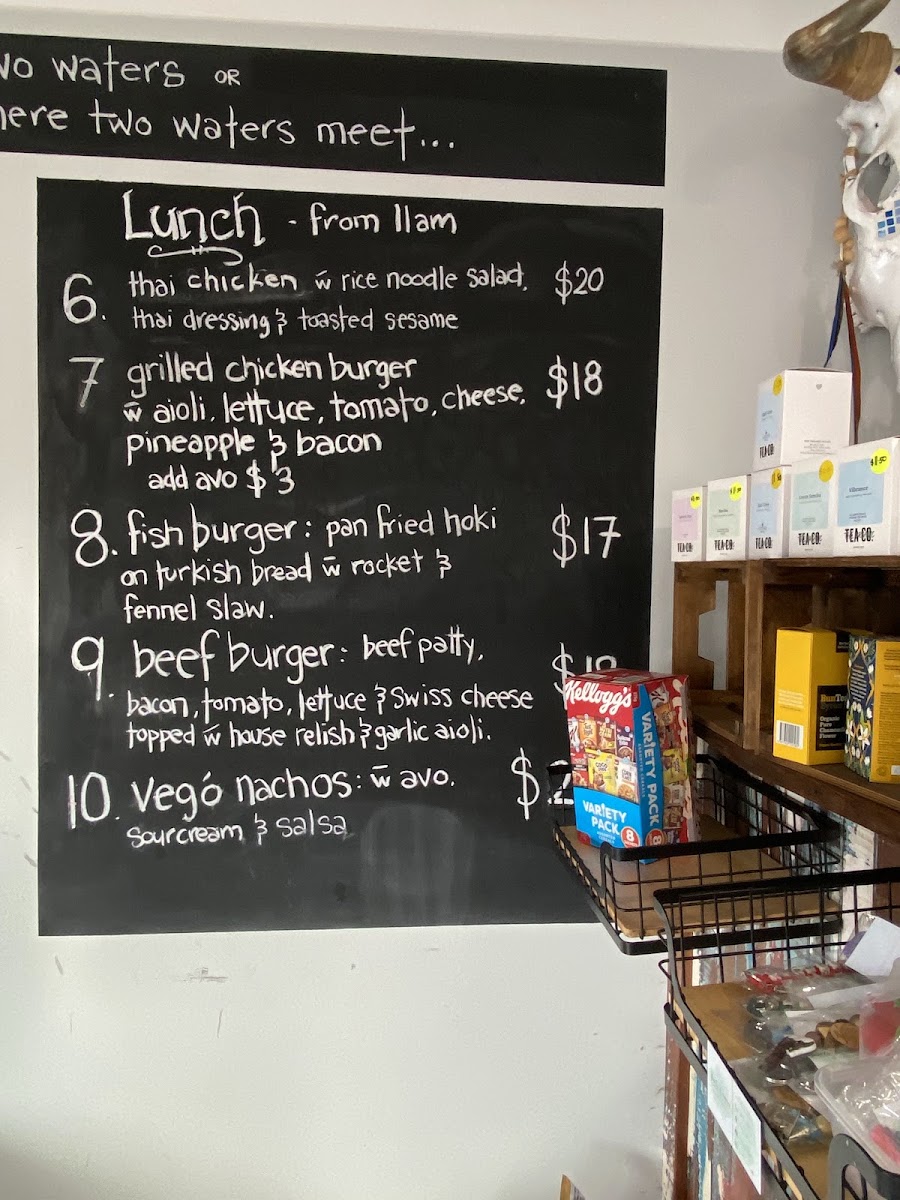 two waters OR
here two waters meet...
Lunch - from 11am
6. thai chicken w̄ rice noodle salad, $20
thai dressing & toasted sesame
7 grilled chicken burger $18
w̄ aioli, lettuce, tomato, cheese,
pineapple & bacon
add avo $3
8. fish burger: pan fried hoki $17
on turkish bread w̄ rocket &
fennel slaw.
9. beef burger: beef patty,
bacon, tomato, lettuce & Swiss cheese
topped w̄ house relish & garlic aioli.
10. vegó nachos: w̄ avo. $
sourcream & salsa
Kellogg's
VARIETY PACK
VARIETY
PACK
8
TEA CO.
TEA CO.
TEA CO.
TEA CO.
TEA CO.
TEA CO.
$1.50
Organic
Pure